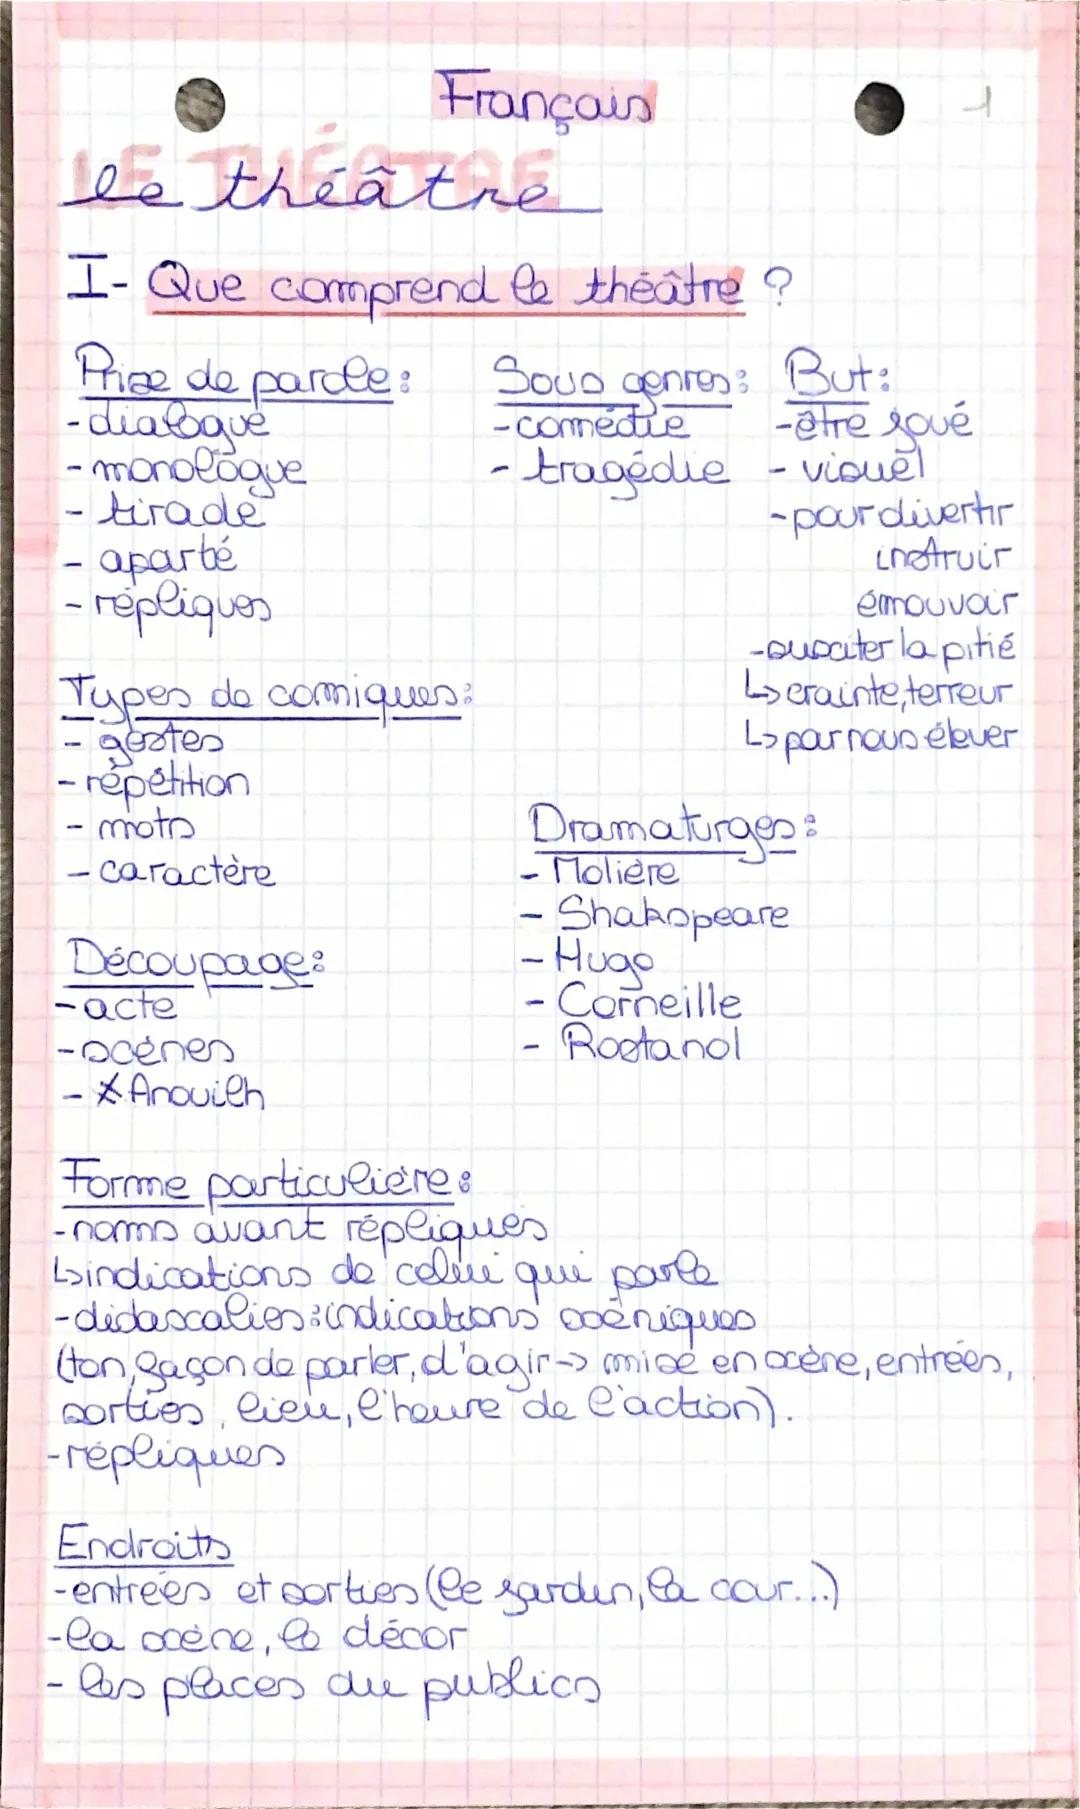 Français
1
LE THÉÂTRE
le théâtre
I- Que comprend le théâtre ?
Prise de parole:
-dialogue
-monologue
- tirade
- aparté
- répliques
Sous genres:
-comédie
- tragédie
But:
-être joué
- visuel
-pour divertir
instruir
émouvoir
-susciter la pitié
↳ crainte, terreur
↳ par nous élever
Types de comiques:
- gestes
- répétition
- mots
- caractère
Dramaturges:
- Molière
- Shakspeare
- Hugo
- Corneille
- Rostanol
Découpage:
-acte
-scènes
- * Anouilh
Forme particulière:
-noms avant répliques
↳indications de celui qui parle
-didascalies: indications scéniques
(ton, façon de parler, d'agir-> mise en scène, entrées,
sorties, lieu, l'heure de l'action).
-répliques
Endroits
-entrées et sorties (le jardin, la cour...)
-la scène, le décor
- les places du publics